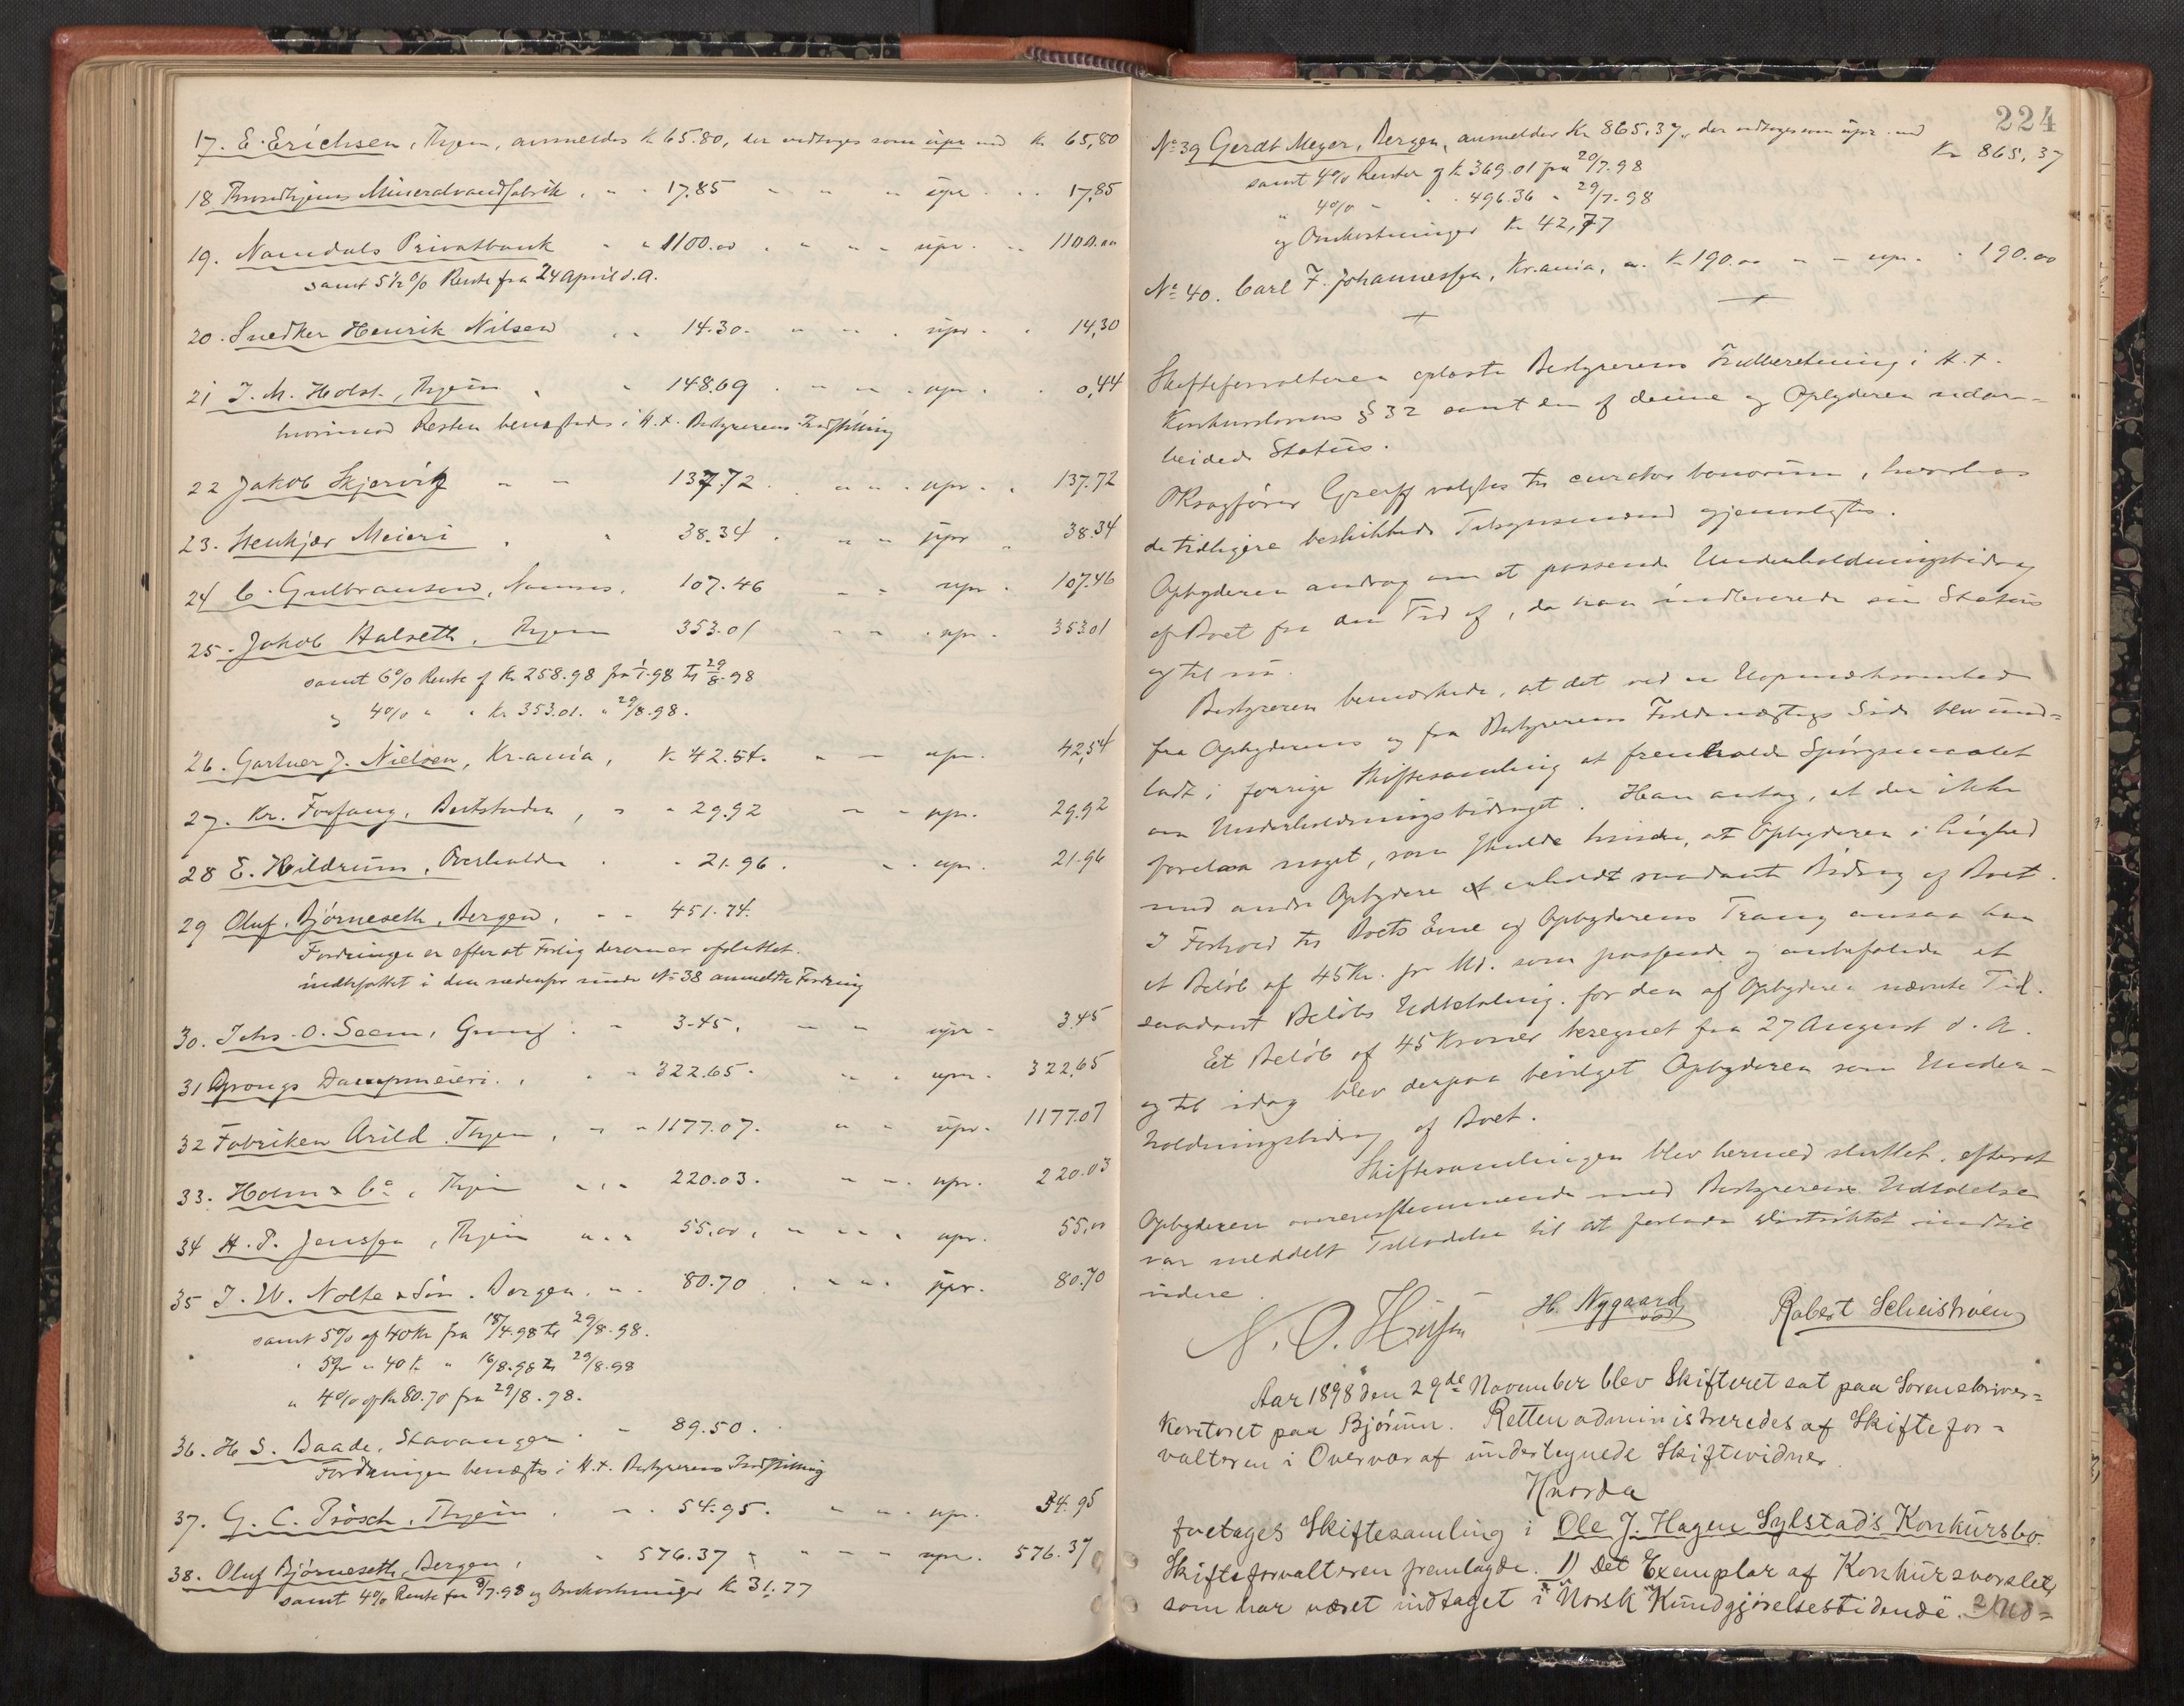 17. E. Erichsen, Thjem, anmeldes Kr 65.80, der vedtoges som upr med Kr 65,80
18 Trondhjems Mineralvandfabrik. " " 17,85 " " " upr " " 17,85
19. Namdals Privatbank " " 1100.00 " " " upr. " 1100.00
samt 5½% Rente fra 24 April d. A.
20. Snedker Henrik Nilsen " " 14.30. " " " upr. " 14,30
21 J. M. Holst, Thjem " " 148.69 " " " upr. " 0,44
hvorimod Resten benegtedes i H. t. Bestyrerens Indstilling
22 Jakob Skjervik " " 137.72 " " " upr. " 137.72
23. Stenkjær Meieri " " 38.34 " " " upr " 38.34
24 C. Gulbransen, Namsos. 107.46 " " upr " 107.46
25. Jakob Halseth, Thjem 353.01 " " " upr. 353.01
samt 6% Rente af Kr 258.98 fra 1/1.98 til 29/8.98
og 4% " " Kr 353.01. " 29/8.98.
26. Gartner J. Nielsen, Kr.ania, Kr 42.54. " " upr. 42,54
27. Kr. Forfang, Beitstaden, " " 29.92 " " upr. 29.92
28 E. Hildrum, Overhalden " " 21.96. " " upr. 21.96
29 Oluf Bjørneseth, Bergen, " " 451.74.
Fordringen er efter at Forlig derom er afsluttet
indbefattet i den nedenfor under No 38 anmeldte Fordring
30. Johs. O. Seem, Grong " " 3.45, " " upr. 3.45
31 Grongs Dampmeieri. " " 322.65. " " upr. 322,65
32 Fabriken Arild Thjem, " " 1177.07. " " upr. 1177.07
33. Holm & Co, Thjem " " 220.03. " " upr. 220.03
34 H. P. Jenssen, Thjem " " 55,00, " " " upr. 55,00
35 J. W. Nolte & Søn. Bergen. " " 80.70 " " " upr. 80.70
samt 5% af 40 Kr fra 18/4.98 til 29/8.98.
" 5% " 40 Kr " 16/8.98 til 29/8.98
" 4% af Kr 80.70 fra 29/8.98.
36. H. S. Baade, Stavanger. " 89.50.
Fordringen benegtes i H. t. Bestyrerens Indstilling
37. G. C. Prösch, Thjem. " " 54.95. " " " upr. 54.95
38. Oluf Bjørneseth, Bergen, " 576.37 " " " upr. 576.37
samt 4% Rente fra 9/7.98 og Omkostninger Kr 31.77
224
No 39 Gerdt Meyer, Bergen, anmelder Kr 865,37, der vedtoges som upr. med
Kr 865,37
samt 4% Renter af Kr 369.01 fra 20/7.98
" 4% " " 496.36 " 29/7.98
og Omkostninger Kr 42,77
No 40. Carl F. Johannessen, Kr.ania, a. Kr 190.00 " " upr. " 190.00
Skifteforvalteren oplæste Bestyrerens Indberetning i H. t.
Konkurslovens § 32 samt den af denne og Opbyderen udar-
beidede Status.
O.Ksagfører Greiff valgtes til curator bonorum, hvorhos
de tidligere beskikkede Tilsynsmænd gjenvalgtes.
Opbyderen androg om et passende Underholdningsbidrag
af Boet fra den Tid af, da han indleverede sin Status
og til nu.
Bestyreren bemærkede, at det ved en Uopmærksomhed
fra Opbyderens og fra Bestyrerens Fuldmægtigs Side blev und-
ladt i forrige Skiftesamling at fremholde Spørgsmaalet
om Underholdningsbidraget. Han antog, at der ikke
forelaa noget, som skulde hindre, at Opbyderen i Lighed
med andre Opbydere erholdt saadant Bidrag af Boet.
I Forhold til Boets Evne og Opbyderens Trang ansaa han
et Beløb af 45 Kr. pr Md. som passende og anbefalede et
saadant Beløbs Udbetaling for den af Opbyderen nævnte Tid.
Et Beløb af 45 Kroner beregnet fra 27 August d. A.
og til idag blev derpaa bevilget Opbyderen som Under-
holdningsbidrag af Boet.
Skiftesamlingen blev hermed sluttet, efterat
Opbyderen overensstemmende med Bestyrerens Udtalelse
var meddelt Tilladelse til at forlade Distriktet indtil
videre.
N. O. H. Nygaard Robert Scheistrøen
Aar 1898 den 29de November blev Skifteret sat paa Sorenskriver=
kontoret paa Bjørum. Retten administreredes af Skiftefor=
valteren i Overvær af undertegnede Skiftevidner.
Hvorda
foretoges Skiftesamling i Ole J. Hagen Sylstads Konkursbo.
Skifteforvalteren fremlagde. 1) Det Exemplar af Konkursvarslet,
som har været indtaget i "Norsk Kundgjørelsestidende". 2) Ud=